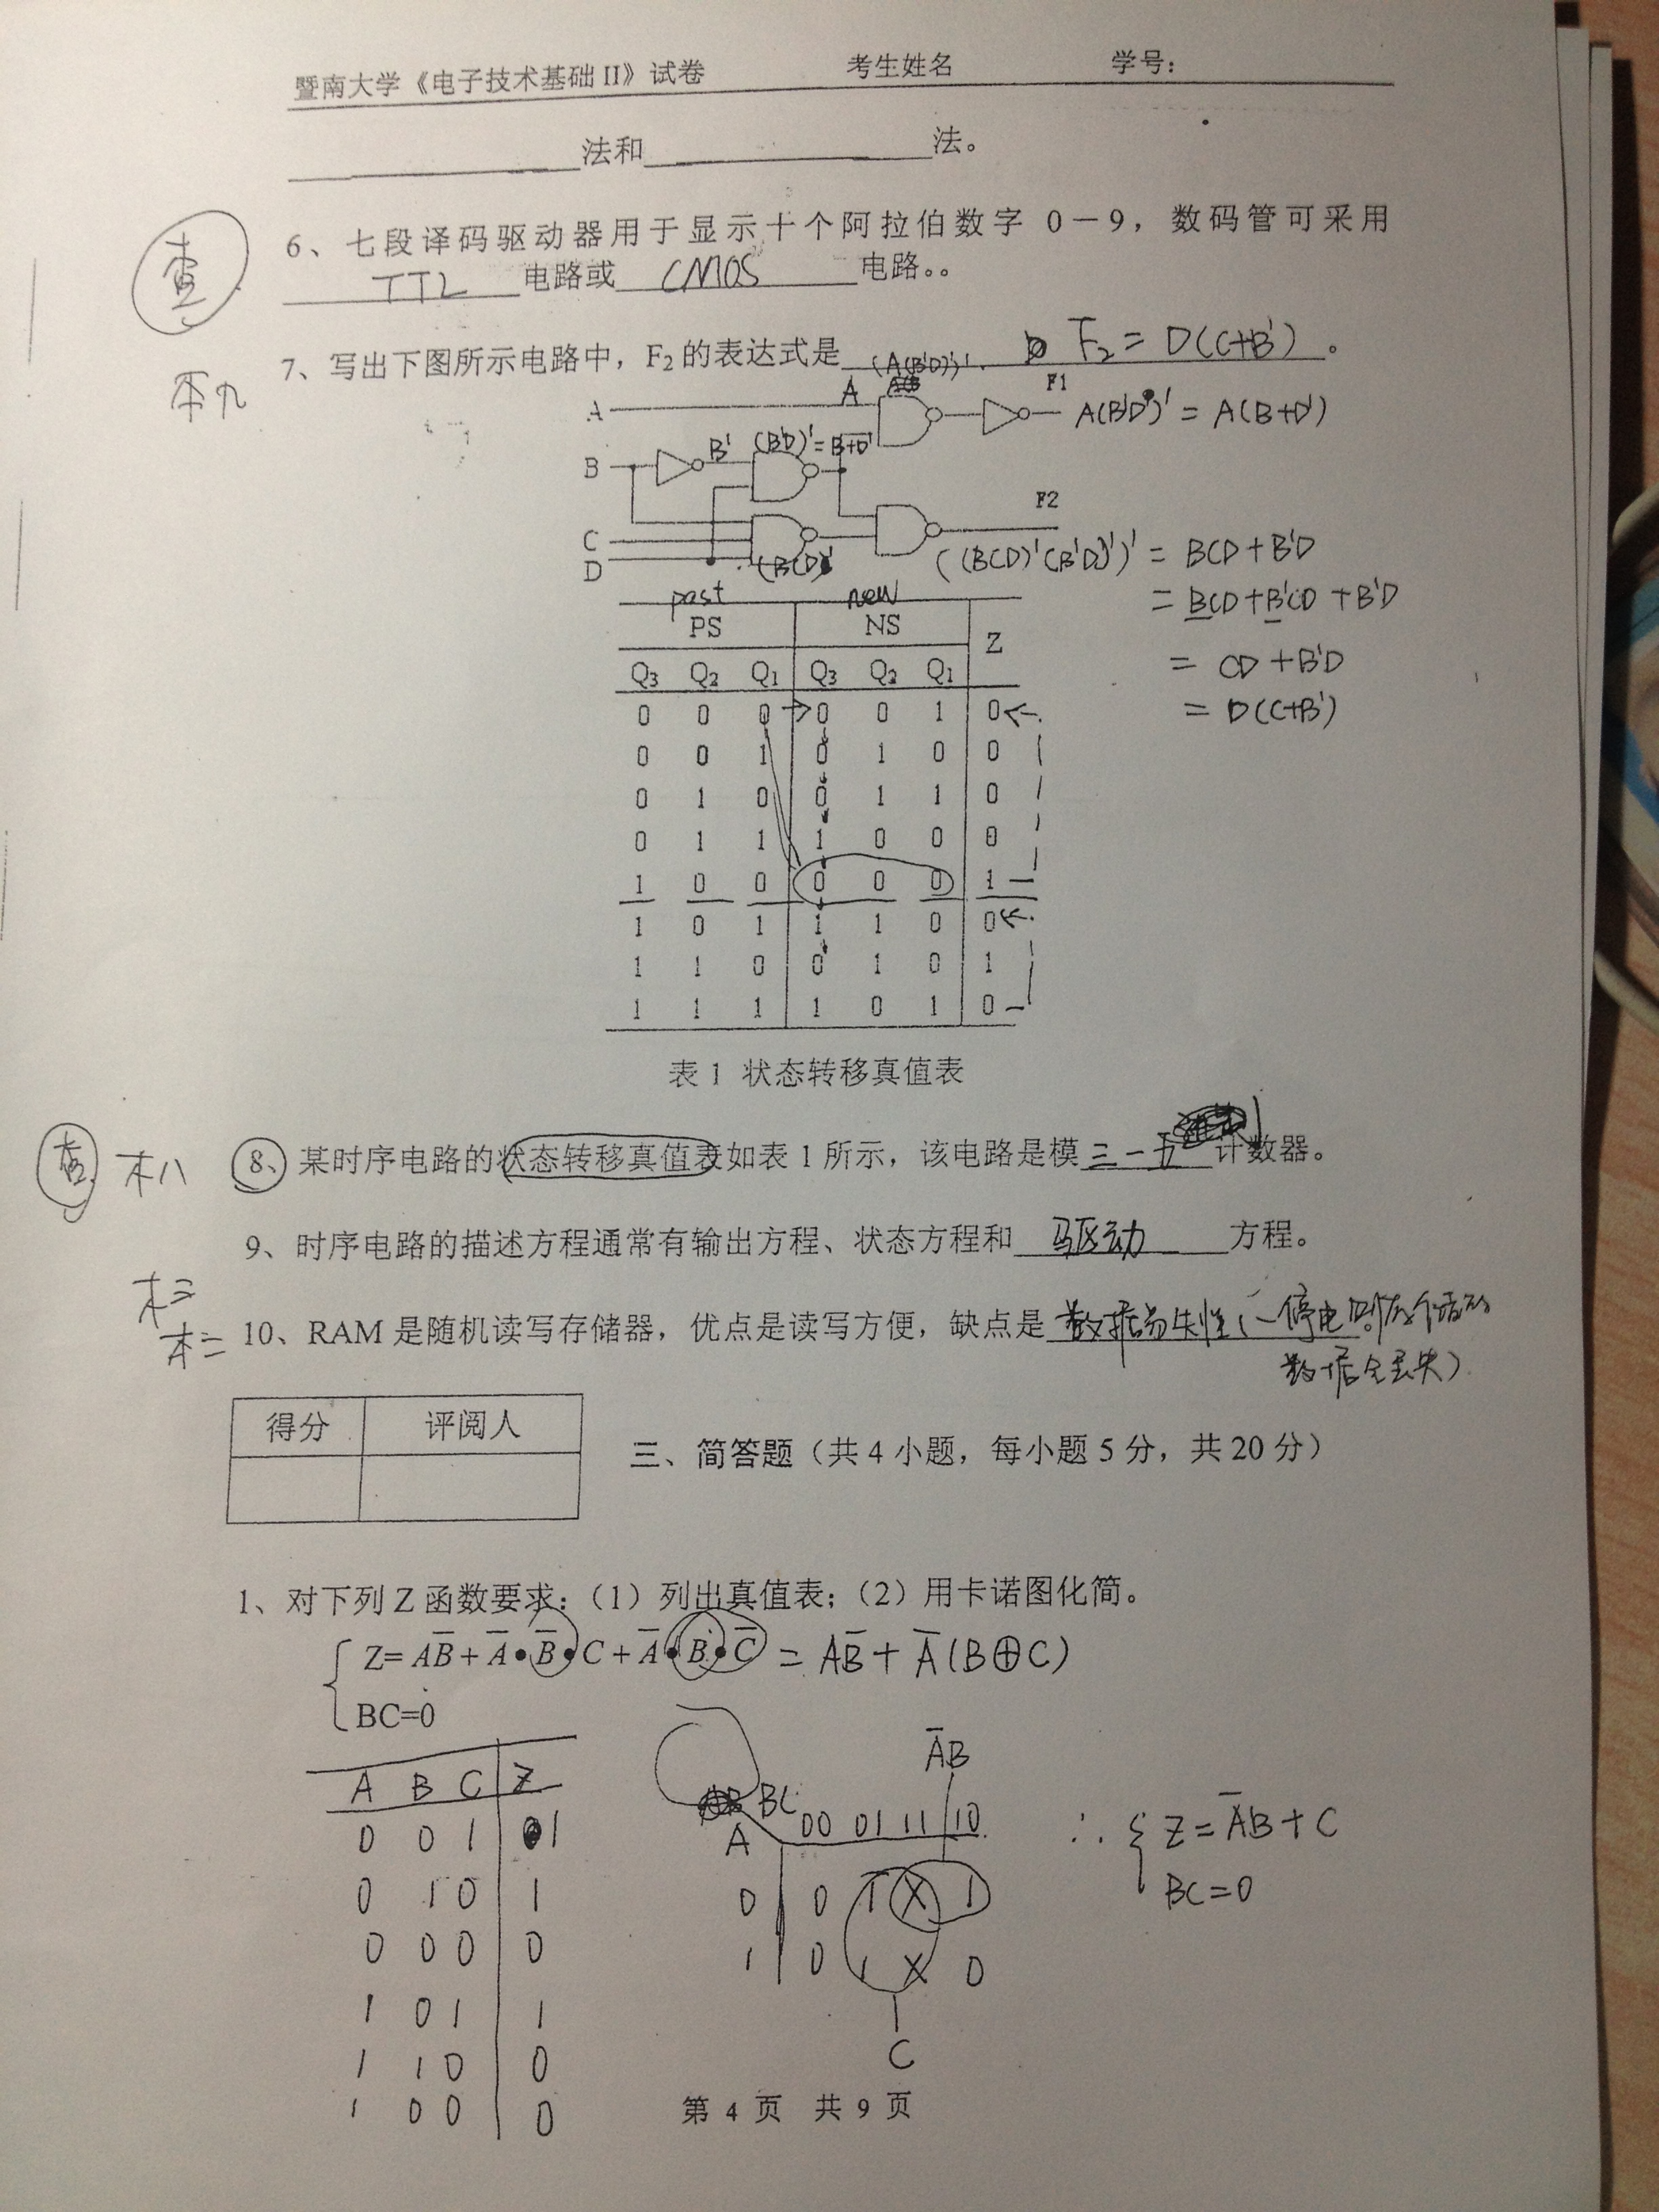 暨南大学《电子技术基础 II》试卷 考生姓名 学号:
法和 法。
查
6、七段译码驱动器用于显示十个阿拉伯数字 0－9，数码管可采用
TTL 电路或 CMOS 电路。。
7、写出下图所示电路中，F₂的表达式是 (A(B'D)')'. F₂ = D(C+B') 。
A A F1 A(B'D)' = A(B+D')
B B' (B'D)'=B+D'
F2
C
D (BCD)' ((BCD)'(B'D)')' = BCD+B'D
= BCD+B'CD+B'D
= CD+B'D
= D(C+B')
past new
PS NS Z
Q3 Q2 Q1 Q3 Q2 Q1
0 0 0 0 0 1 0
0 0 1 0 1 0 0
0 1 0 0 1 1 0
0 1 1 1 0 0 0
1 0 0 0 0 0 1
1 0 1 1 1 0 0
1 1 0 0 1 0 1
1 1 1 1 0 1 0
表 1 状态转移真值表
查
8、某时序电路的状态转移真值表如表 1 所示，该电路是模 五 计数器。
9、时序电路的描述方程通常有输出方程、状态方程和 驱动 方程。
10、RAM 是随机读写存储器，优点是读写方便，缺点是 数据易失性(一停电
数据会丢失)
得分 评阅人
三、简答题（共 4 小题，每小题 5 分，共 20 分）
1、对下列 Z 函数要求：（1）列出真值表；（2）用卡诺图化简。
Z= AB̅ + A̅•B̅•C + A̅•B•C̅ = AB̅ + A̅(B⊕C)
BC=0
A B C Z
0 0 1 1
0 1 0 1
0 0 0 0
1 0 1 1
1 1 0 0
1 0 0 0
A̅B
BC
A 00 01 11 10
0 0 1 X 1
1 0 1 X 0
C
∴ { Z = A̅B + C
BC=0
第 4 页 共 9 页